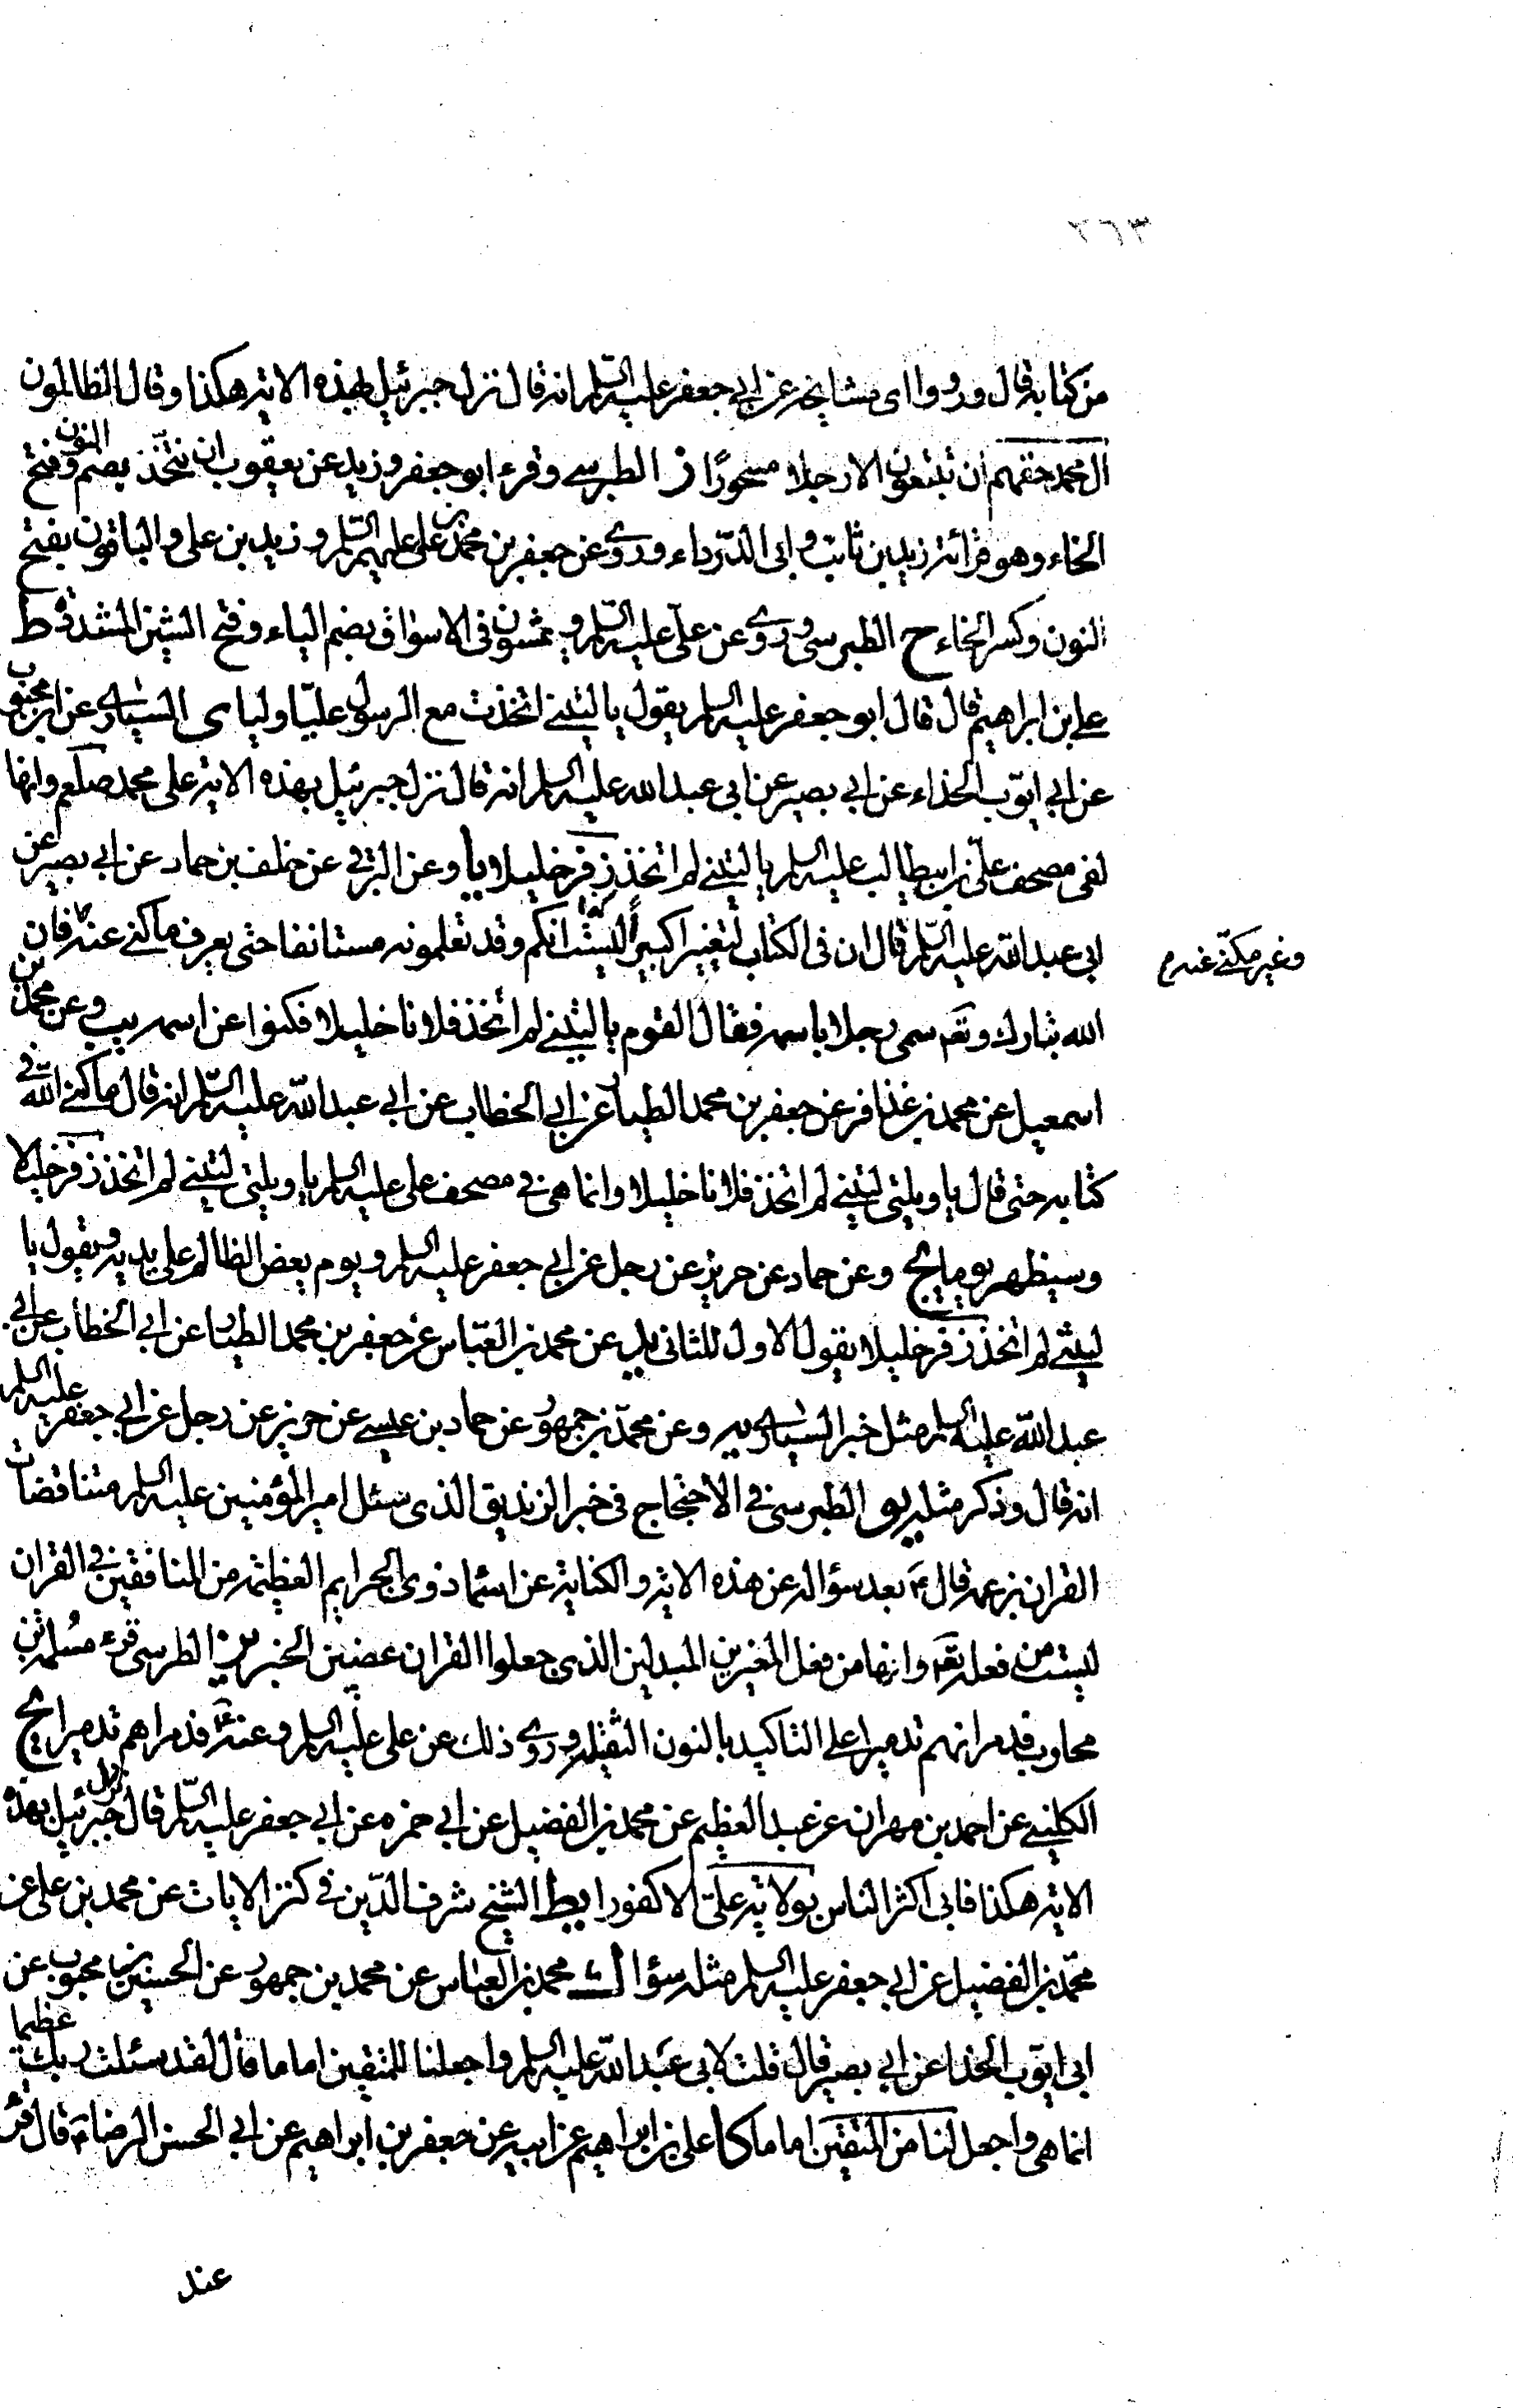 ٢٦٣
من كتابه قال ورووا اى مشايخه عن ابى جعفر عليه السلم انه قال نزل جبرئيل بهذه الاية هكذا وقال الظالمون
ال محمد حقهم ان تتبعون الا رجلا مسحورًا ز الطبرسي وقرء ابو جعفر وزيد عن يعقوب ان نتّخذ بضم النون وفتح
الخاء وهو قرائة زيد بن ثابت وابى الدّرداء وروى عن جعفر بن محمد بن على عليهم السّلم وزيد بن على والباقون بفتح
النون وكسر الخاء ح الطبرسى وروى عن علىّ عليه السّلم ويمشون فى الاسواق بضم الياء وفتح الشين المشددة ط
على بن ابراهيم قال قال ابو جعفر عليه السلم يقول يا ليتنى اتخذت مع الرسول عليّا وليا ى السيّارى عن ابن محبوب
عن ابى ايّوب الحذاء عن ابى بصير عن ابى عبد الله عليه السلم انه قال نزل جبرئيل بهذه الاية على محمد صلعم وانها
لفى مصحف علىّ بن ابيطالب عليه السلم يا ليتنى لم اتخذ زفر خليلا يا وعن البرقى عن خلف بن حماد عن ابى بصير عن
ابى عبد الله عليه السّلم قال ان فى الكتاب لتغييرا كبيرًا انكم وقد تعلمونه مستانفا حتى يعرف ما كنى عنه فان
وغير مكنّى عنه م
الله تبارك وتعَ سمى رجلا باسمه فقال القوم يا ليتنى لم أتخذ فلانا خليلا فكنوا عن اسمه يب وعن محمد بن
اسمعيل عن محمد بن عذافر عن جعفر بن محمد الطيار عن ابى الخطاب عن ابى عبد الله عليه السّلم انه قال ما كنى الله فى
كتابه حتى قال يا ويلتى ليتنى لم اتخذ فلانا خليلا وانما هى فى مصحف على عليه السلم يا ويلتى ليتنى لم اتخذ زفر خليلا
وسيظهر يوما يج وعن حماد عن حريز عن رجل عن ابى جعفر عليه السلم ويوم يعض الظالم على يديه ويقول يا
ليتنى لم اتخذ زفر خليلا يقول الاول للثانى يد عن محمد بن العبّاس عن جعفر بن محمد الطيار عن ابى الخطاب عن ابى
عبد الله عليه السلم مثل خبر السيّارى يه وعن محمّد بن جمهور عن حماد بن عيسى عن حريز عن رجل عن ابى جعفر عليه السلم
انه قال وذكر مثله يو الطبرسى فى الاحتجاج فى خبر الزنديق الذى سئل امير المؤمنين عليه السلم متناقضات
القران بزعمه قال ع بعد سؤاله عن هذه الاية والكناية عن اسماء ذوى الجرايم العظيمة من المنافقين فى القران
ليست من فعله تعَ وانها من فعل المغيرين المبدلين الذى جعلوا القران عضين الخبر يز الطبرسى قرء مسلمة بن
محارب فدمرانهم تدميرا على التاكيد بالنون الثقيلة وروى ذلك عن على عليه السلم وعنه ع فدمراهم تدميرا يح
الكلينى عن احمد بن مهران عن عبد العظيم عن محمد بن الفضيل عن ابى حمزه عن ابى جعفر عليه السّلم قال نزل جبرئيل بهذه
الاية هكذا فابى اكثر الناس بولاية علىّ الا كفورا يط الشيخ شرف الدّين فى كنز الايات عن محمد بن على عن
محمّد بن الفضيل عن ابى جعفر عليه السلم مثله سؤا ك محمد بن العباس عن محمد بن جمهور عن الحسن بن محبوب عن
ابى ايّوب الخذا عن ابى بصير قال قلت لابى عبد الله عليه السلم واجعلنا للمتقين اماما قال لقد سئلت ربك عظيما
انما هى واجعل لنا من المتقين اماما كا على بن ابراهيم عن ابيه عن جعفر بن ابراهيم عن ابى الحسن الرضا ع قال قرء
عند